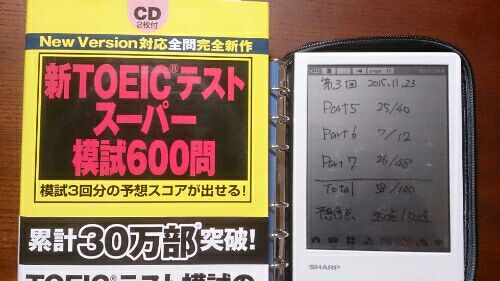 CD
2枚付
New Version対応全問完全新作
新TOEIC®テスト
スーパー
模試600問
模試3回分の予想スコアが出せる!
累計30万部突破!
TOEIC®テスト模試の
page 12
第3回 2015.11.23
Part5 25/40
Part6 7/12
Part7 26/48
Total 58/100
SHARP